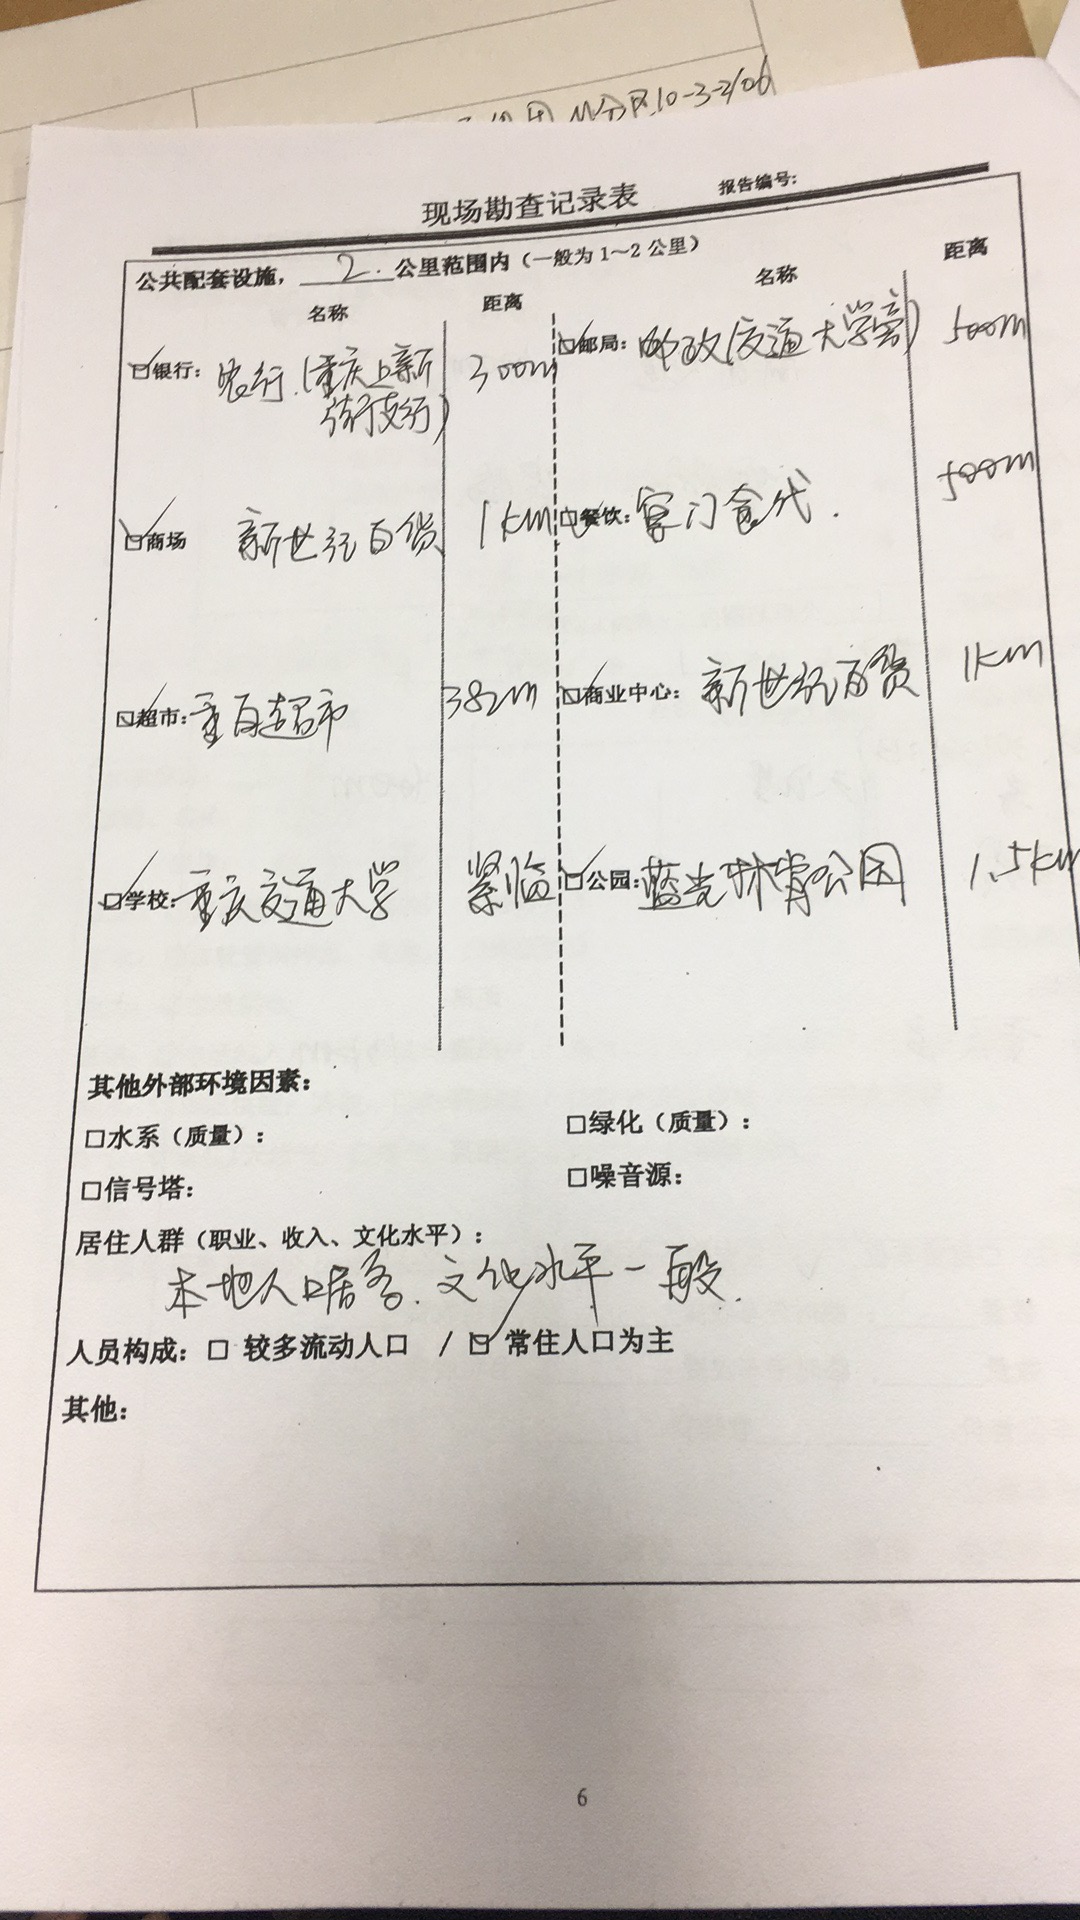 10-3-2106
现场勘查记录表
报告编号:
公共配套设施, 2. 公里范围内(一般为 1~2 公里)
名称 距离 名称 距离
银行: 农行.(重庆上新街支行) 300m
邮局: 邮政(交通大学旁) 500m
商场 新世纪百货 1km
餐饮: 500m
超市: 重百超市 382m
商业中心: 新世纪百货 1km
学校: 重庆交通大学 紧临
公园: 蓝光林肯公园 1.5km
其他外部环境因素:
□水系(质量): □绿化(质量):
□信号塔: □噪音源:
居住人群(职业、收入、文化水平):
本地人口居多. 文化水平一般.
人员构成: □ 较多流动人口 / ☑ 常住人口为主
其他:
6